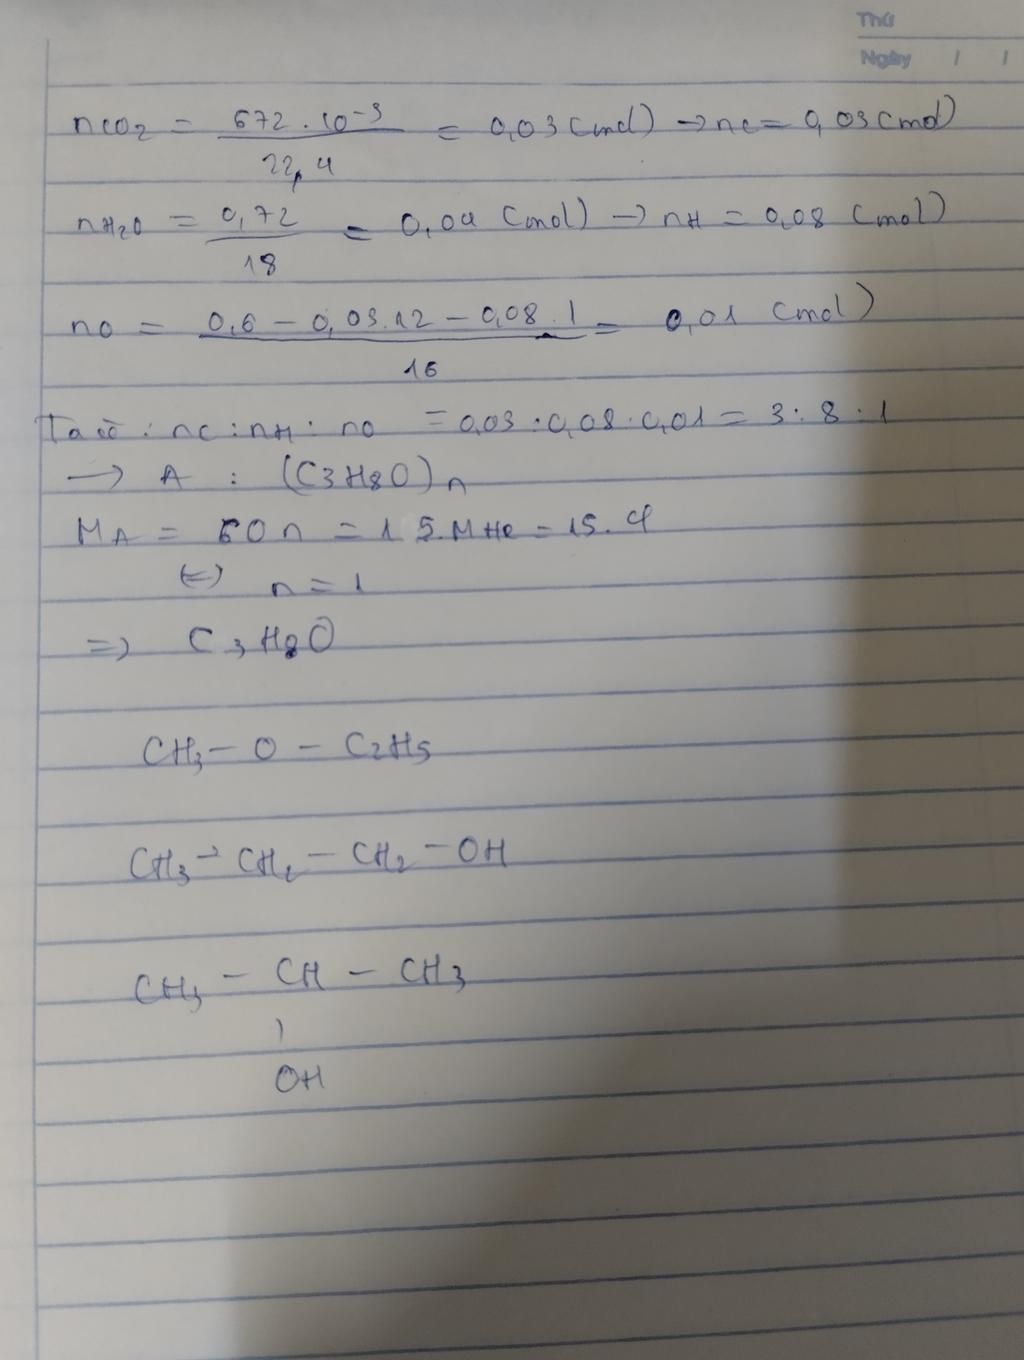 Thứ
Ngày / /
nCO2 = 672 . 10^-3 / 22,4 = 0,03 (mol) → nC = 0,03 (mol)
nH2O = 0,72 / 18 = 0,04 (mol) → nH = 0,08 (mol)
nO = 0,6 - 0,03.12 - 0,08.1 / 16 = 0,01 (mol)
Ta có : nC : nH : nO = 0,03 : 0,08 : 0,01 = 3 : 8 : 1
→ A : (C3H8O)n
MA = 60n = 15.MHe = 15.4
(=) n = 1
=) C3H8O
CH3 - O - C2H5
CH3 - CH2 - CH2 - OH
CH3 - CH - CH3
|
OH